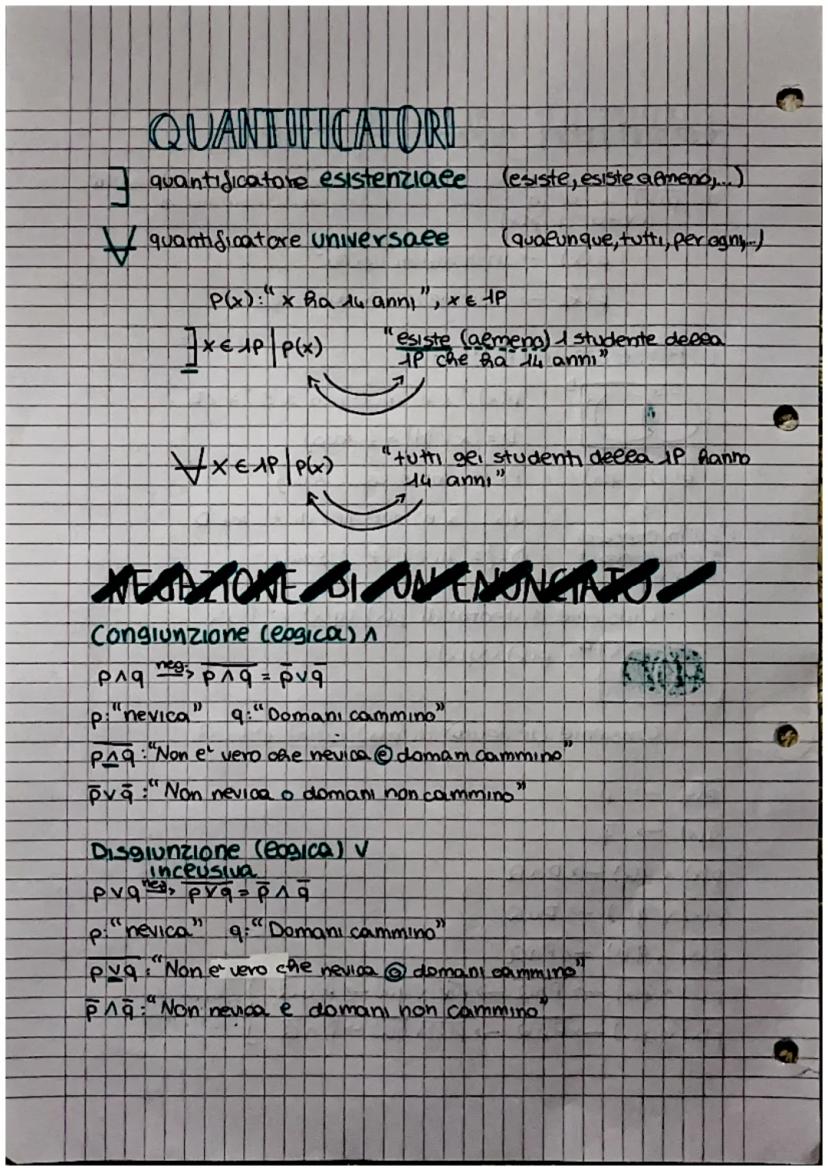 QUANTIFICATORI
∃ quantificatore esistenziale (esiste, esiste almeno,...)
∀ quantificatore universale (qualunque, tutti, per ogni,...)
P(x): "x ha 14 anni", x ∈ 1P
∃ x ∈ 1P | p(x) "esiste (almeno) 1 studente della
1P che ha 14 anni"
∀ x ∈ 1P | p(x) "tutti gli studenti della 1P hanno
14 anni"
NEGAZIONE DI UN ENUNCIATO
Congiunzione (logica) ∧
p∧q neg.> p̅ ̅∧̅ ̅q̅ = p̅ ∨ q̅
p: "nevica" q: "Domani cammino"
p̅ ̅∧̅ ̅q̅ : "Non e' vero che nevica e domani cammino"
p̅ ∨ q̅ : "Non nevica o domani non cammino"
Disgiunzione (logica) ∨
inclusiva
p∨q neg.> p̅ ̅∨̅ ̅q̅ = p̅ ∧ q̅
p: "nevica" q: "Domani cammino"
p̅ ̅∨̅ ̅q̅ : "Non e' vero che nevica o domani cammino"
p̅ ∧ q̅ : "Non nevica e domani non cammino"